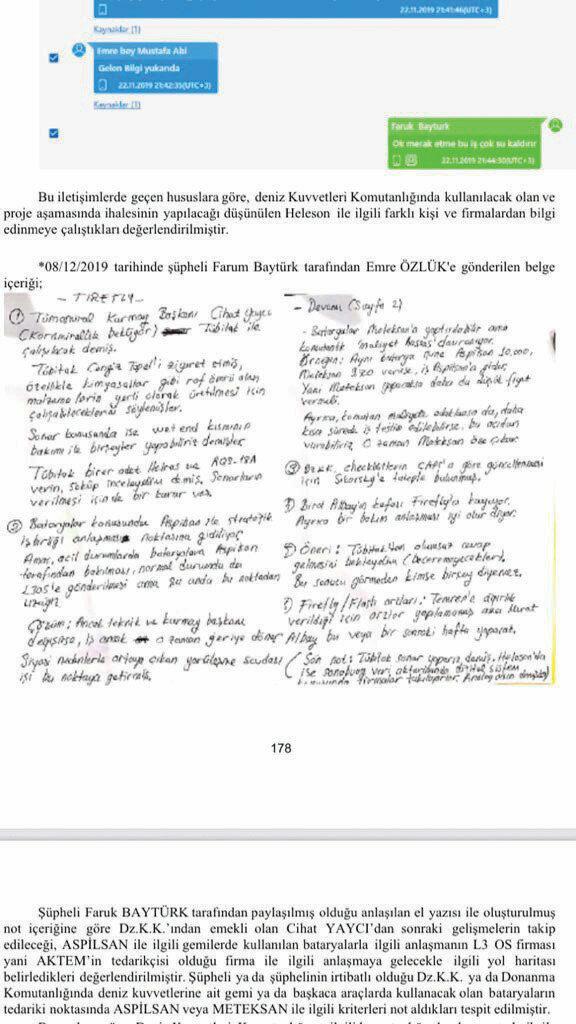 22.11.2019 21:41:46(UTC+3)
Kaynaklar (1)
Emre bey Mustafa Abi
Gelen Bilgi yukarıda
22.11.2019 21:42:35(UTC+3)
Kaynaklar (1)
Faruk Bayturk
Ok merak etme bu iş çok su kaldırır
22.11.2019 21:44:30(UTC+3)
Bu iletişimlerde geçen hususlara göre, deniz Kuvvetleri Komutanlığında kullanılacak olan ve
proje aşamasında ihalesinin yapılacağı düşünülen Heleson ile ilgili farklı kişi ve firmalardan bilgi
edinmeye çalıştıkları değerlendirilmiştir.
*08/12/2019 tarihinde şüpheli Farum Baytürk tarafından Emre ÖZLÜK'e gönderilen belge
içeriği;
- TIRETLY -
① Tümamiral Kurmay Başkanı Cihat Yaycı
(Koramirallik bekliyor) Tübitak ile
çalışılacak demiş.
Tübitak Cengiz Topel'i ziyaret etmiş,
özellikle kimyasallar gibi raf ömrü olan
malzemelerin yerli olarak üretilmesi için
çalışabileceklerini söylemişler.
Sonar konusunda ise wet end kısmının
bakımı ile birşeyler yapabiliriz demişler.
Tübitak birer adet Helras ve AQS-18A
verin, söküp inceleyelim demiş. Sonarların
verilmesi için de bir karar var.
② Bataryalar konusunda Aspilsan ile stratejik
işbirliği anlaşması noktasına gidiliyor.
Amaç, acil durumlarda bataryaların Aspilsan
tarafından bakılması, normal durumda da
L3OS'e gönderilmesi ama şu anda bu noktadan
uzağız
Çözüm: Ancak teknik ve kurmay başkanı
değişirse, iş ancak o zaman geriye döner
Siyasi nedenlerle ortaya çıkan yerlileşme sevdası
işi bu noktaya getirmiş.
- Devamı (Sayfa 2)
- Bataryalar Meteksan'a yaptırılabilir ama
komutanlık "maliyet hassas" davranıyor.
Örneğin: Aynı batarya için Aspilsan 10.000,
Meteksan 9.20 verirse, iş Aspilsan'a gider,
Yani Meteksan yaparsa daha da düşük fiyat
vermeli.
Ayrıca, komutan maliyete odaklansa da, daha
kısa sürede iş teslim edilebilirse, bu açıdan
vurabiliriz o zaman Meteksan öne çıkar.
③ Dz.KK, checklistlerin CAPS'a göre güncellenmesi
için Sikorsky'e talepte bulunmuş.
Birol Albay'ın kafası Firefly'a kayıyor.
Ayrıca bir bakım anlaşması iyi olur diyor.
Öneri: Tübitak'tan olumsuz cevap
gelmesini bekleyelim (Beceremeyecekler).
Bu sonucu görmeden kimse birşey diyemez.
Firefly/Flash arzları: Temren'e ağırlık
verildiği için arzlar yapılamamış ama Murat
Albay bu veya bir sonraki hafta yapacak.
(Son not: Tübitak sonar yaparız demiş. Heleson'da
ise sonobuoy veri aktarımında dijital sistem
konusunda firmalar takılıyorlar. Analog olsun demişler)
178
Şüpheli Faruk BAYTÜRK tarafından paylaşılmış olduğu anlaşılan el yazısı ile oluşturulmuş
not içeriğine göre Dz.K.K.'ından emekli olan Cihat YAYCI'dan sonraki gelişmelerin takip
edileceği, ASPİLSAN ile ilgili gemilerde kullanılan bataryalarla ilgili anlaşmanın L3 OS firması
yani AKTEM'in tedarikçisi olduğu firma ile ilgili anlaşmaya gelecekle ilgili yol haritası
belirledikleri değerlendirilmiştir. Şüpheli ya da şüphelinin irtibatlı olduğu Dz.K.K. ya da Donanma
Komutanlığında deniz kuvvetlerine ait gemi ya da başkaca araçlarda kullanacak olan bataryaların
tedariki noktasında ASPİLSAN veya METEKSAN ile ilgili kriterleri not aldıkları tespit edilmiştir.